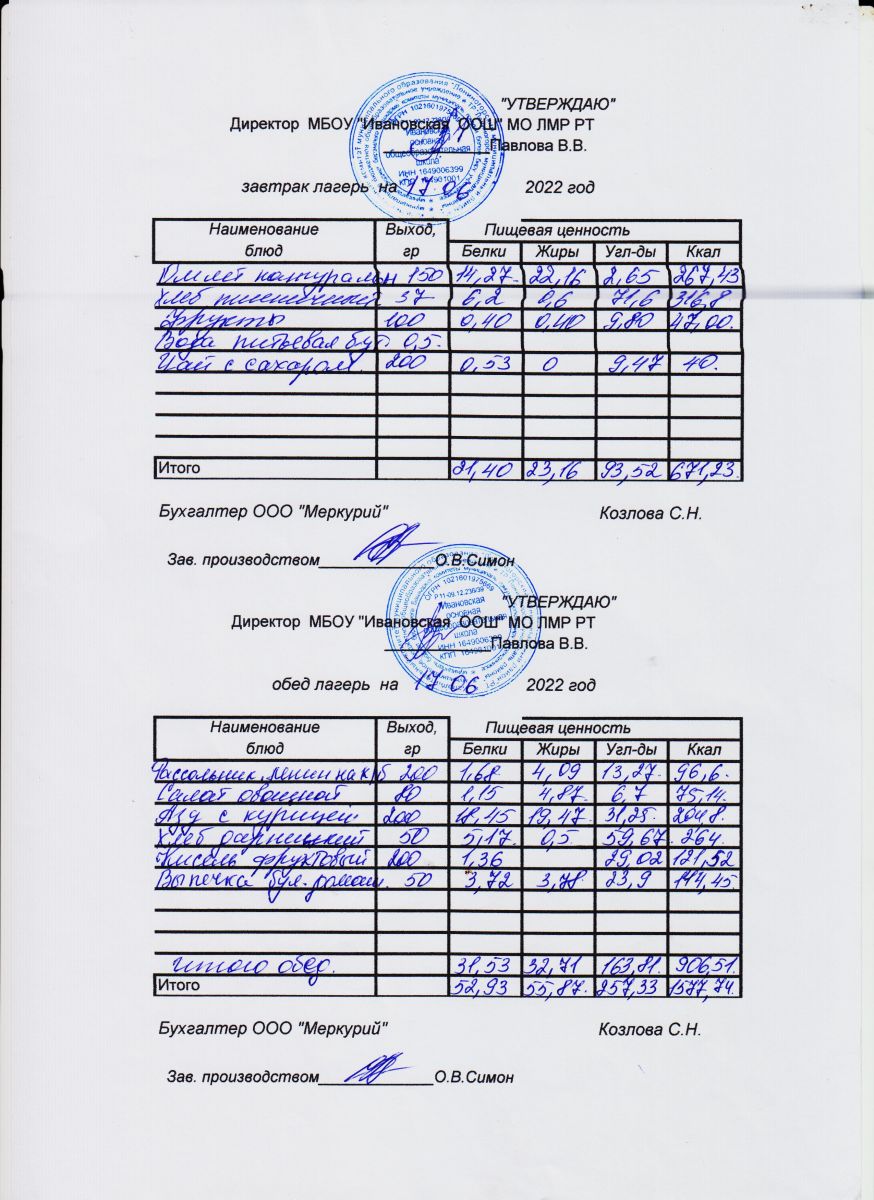 "УТВЕРЖДАЮ"
Директор МБОУ "Ивановская ООШ" МО ЛМР РТ
Павлова В.В.
ОГРН 1021601975669
Ивановская
основная
общеобразовательная
школа
ИНН 1649006399
КПП 164901001
завтрак лагерь на 17.06 2022 год
Наименование блюд Выход, гр Пищевая ценность
Белки Жиры Угл-ды Ккал
Омлет натуральн 150 14,27 22,16 2,65 267,43
Хлеб пшеничный 37 6,2 0,6 71,6 316,8
Фрукты 100 0,40 0,40 9,80 47,00.
Вода питьевая бут. 0,5.
Чай с сахаром. 200 0,53 0 9,47 40.
Итого 21,40 23,16 93,52 671,23.
Бухгалтер ООО "Меркурий" Козлова С.Н.
Зав. производством____________О.В.Симон
"УТВЕРЖДАЮ"
Директор МБОУ "Ивановская ООШ" МО ЛМР РТ
Павлова В.В.
ОГРН 1021601975669
Р 11-09.12.236/39
Ивановская
основная
общеобразовательная
школа
ИНН 1649006399
КПП 164901001
обед лагерь на 17.06 2022 год
Наименование блюд Выход, гр Пищевая ценность
Белки Жиры Угл-ды Ккал
Рассольник ленин на к/б 200 1,68 4,09 13,27. 96,6.
Салат овощной 80 1,15 4,87. 6,7 75,14.
Азу с курицей 200 18,45 19,47. 31,25. 204,8.
Хлеб дарницкий 50 5,17. 0,5. 59,67. 264.
Кисель фруктовый 200 1,36 29,02 121,52
Выпечка бул. домаш. 50 3,72 3,78 23,9 144,45
итого обед. 31,53 32,71 163,81. 906,51.
Итого 52,93 55,87. 257,33 1577,74.
Бухгалтер ООО "Меркурий" Козлова С.Н.
Зав. производством____________О.В.Симон